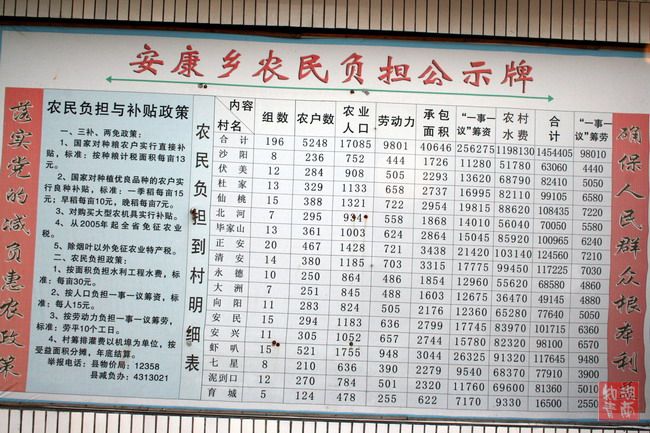 安康乡农民负担公示牌
落实党的减负惠农政策
农民负担与补贴政策
一、三补、两免政策：
1、国家对种粮农户实行直接补
贴，标准：按种粮计税面积每亩13
元。
2、国家对种植优良品种的农户实
行良种补贴，标准：一季稻每亩15
元；早稻每亩10元，晚稻每亩7元。
3、对购买大型农机具实行补贴。
4、从2005年起全省免征农业
税。
5、除烟叶以外免征农业特产税。
二、农民负担政策：
1、按面积负担水利工程水费，标
准：每亩30元。
2、按人口负担一事一议筹资，标
准：每人15元。
3、按劳动力负担一事一议筹劳，
标准：劳平10个工日。
4、村筹排灌费以机埠为单位，按
受益面积分摊，年底结算。
举报电话：县物价局：12358
县减负办：4313021
农民负担到村明细表
内容 村名 组数 农户数 农业人口 劳动力 承包面积 “一事一议”筹资 农村水费 合计 “一事一议”筹劳
合计 196 5248 17085 9801 40646 256275 1198130 1454405 98010
沙阳 8 236 752 444 1726 11280 51780 63060 4440
伏美 12 284 908 505 2293 13620 68790 82410 5050
杜家 13 329 1133 658 2737 16995 82110 99105 6580
仙桃 15 388 1321 722 2954 19815 88620 108435 7220
北河 7 295 934 558 1868 14010 56040 70050 5580
毕家山 13 401 1003 624 2864 15045 85920 100965 6240
正安 20 467 1428 721 3438 21420 103140 124560 7210
清安 14 380 1185 703 3315 17775 99450 117225 7030
永德 10 250 864 486 1854 12960 55620 68580 4860
大洲 7 251 845 488 1603 12675 36470 49145 4880
向阳 11 283 824 505 2176 12360 65280 77640 5050
安民 15 294 1183 636 2799 17745 83970 101715 6360
安兴 11 305 1052 657 2744 15780 82320 98100 6570
虾叭 15 521 1755 948 3044 26325 91320 117645 9480
七星 8 210 636 390 2279 9540 68370 77910 3900
泥到口 12 270 784 501 2320 11760 69600 81360 5010
育城 5 124 478 255 622 7170 9330 16500 2550
确保人民群众根本利